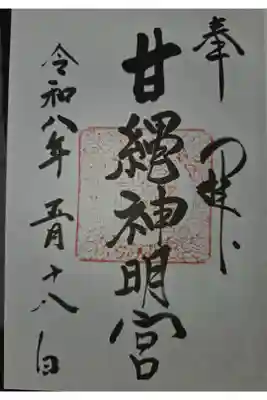 奉
甘縄神明宮
令和八年五月十八日